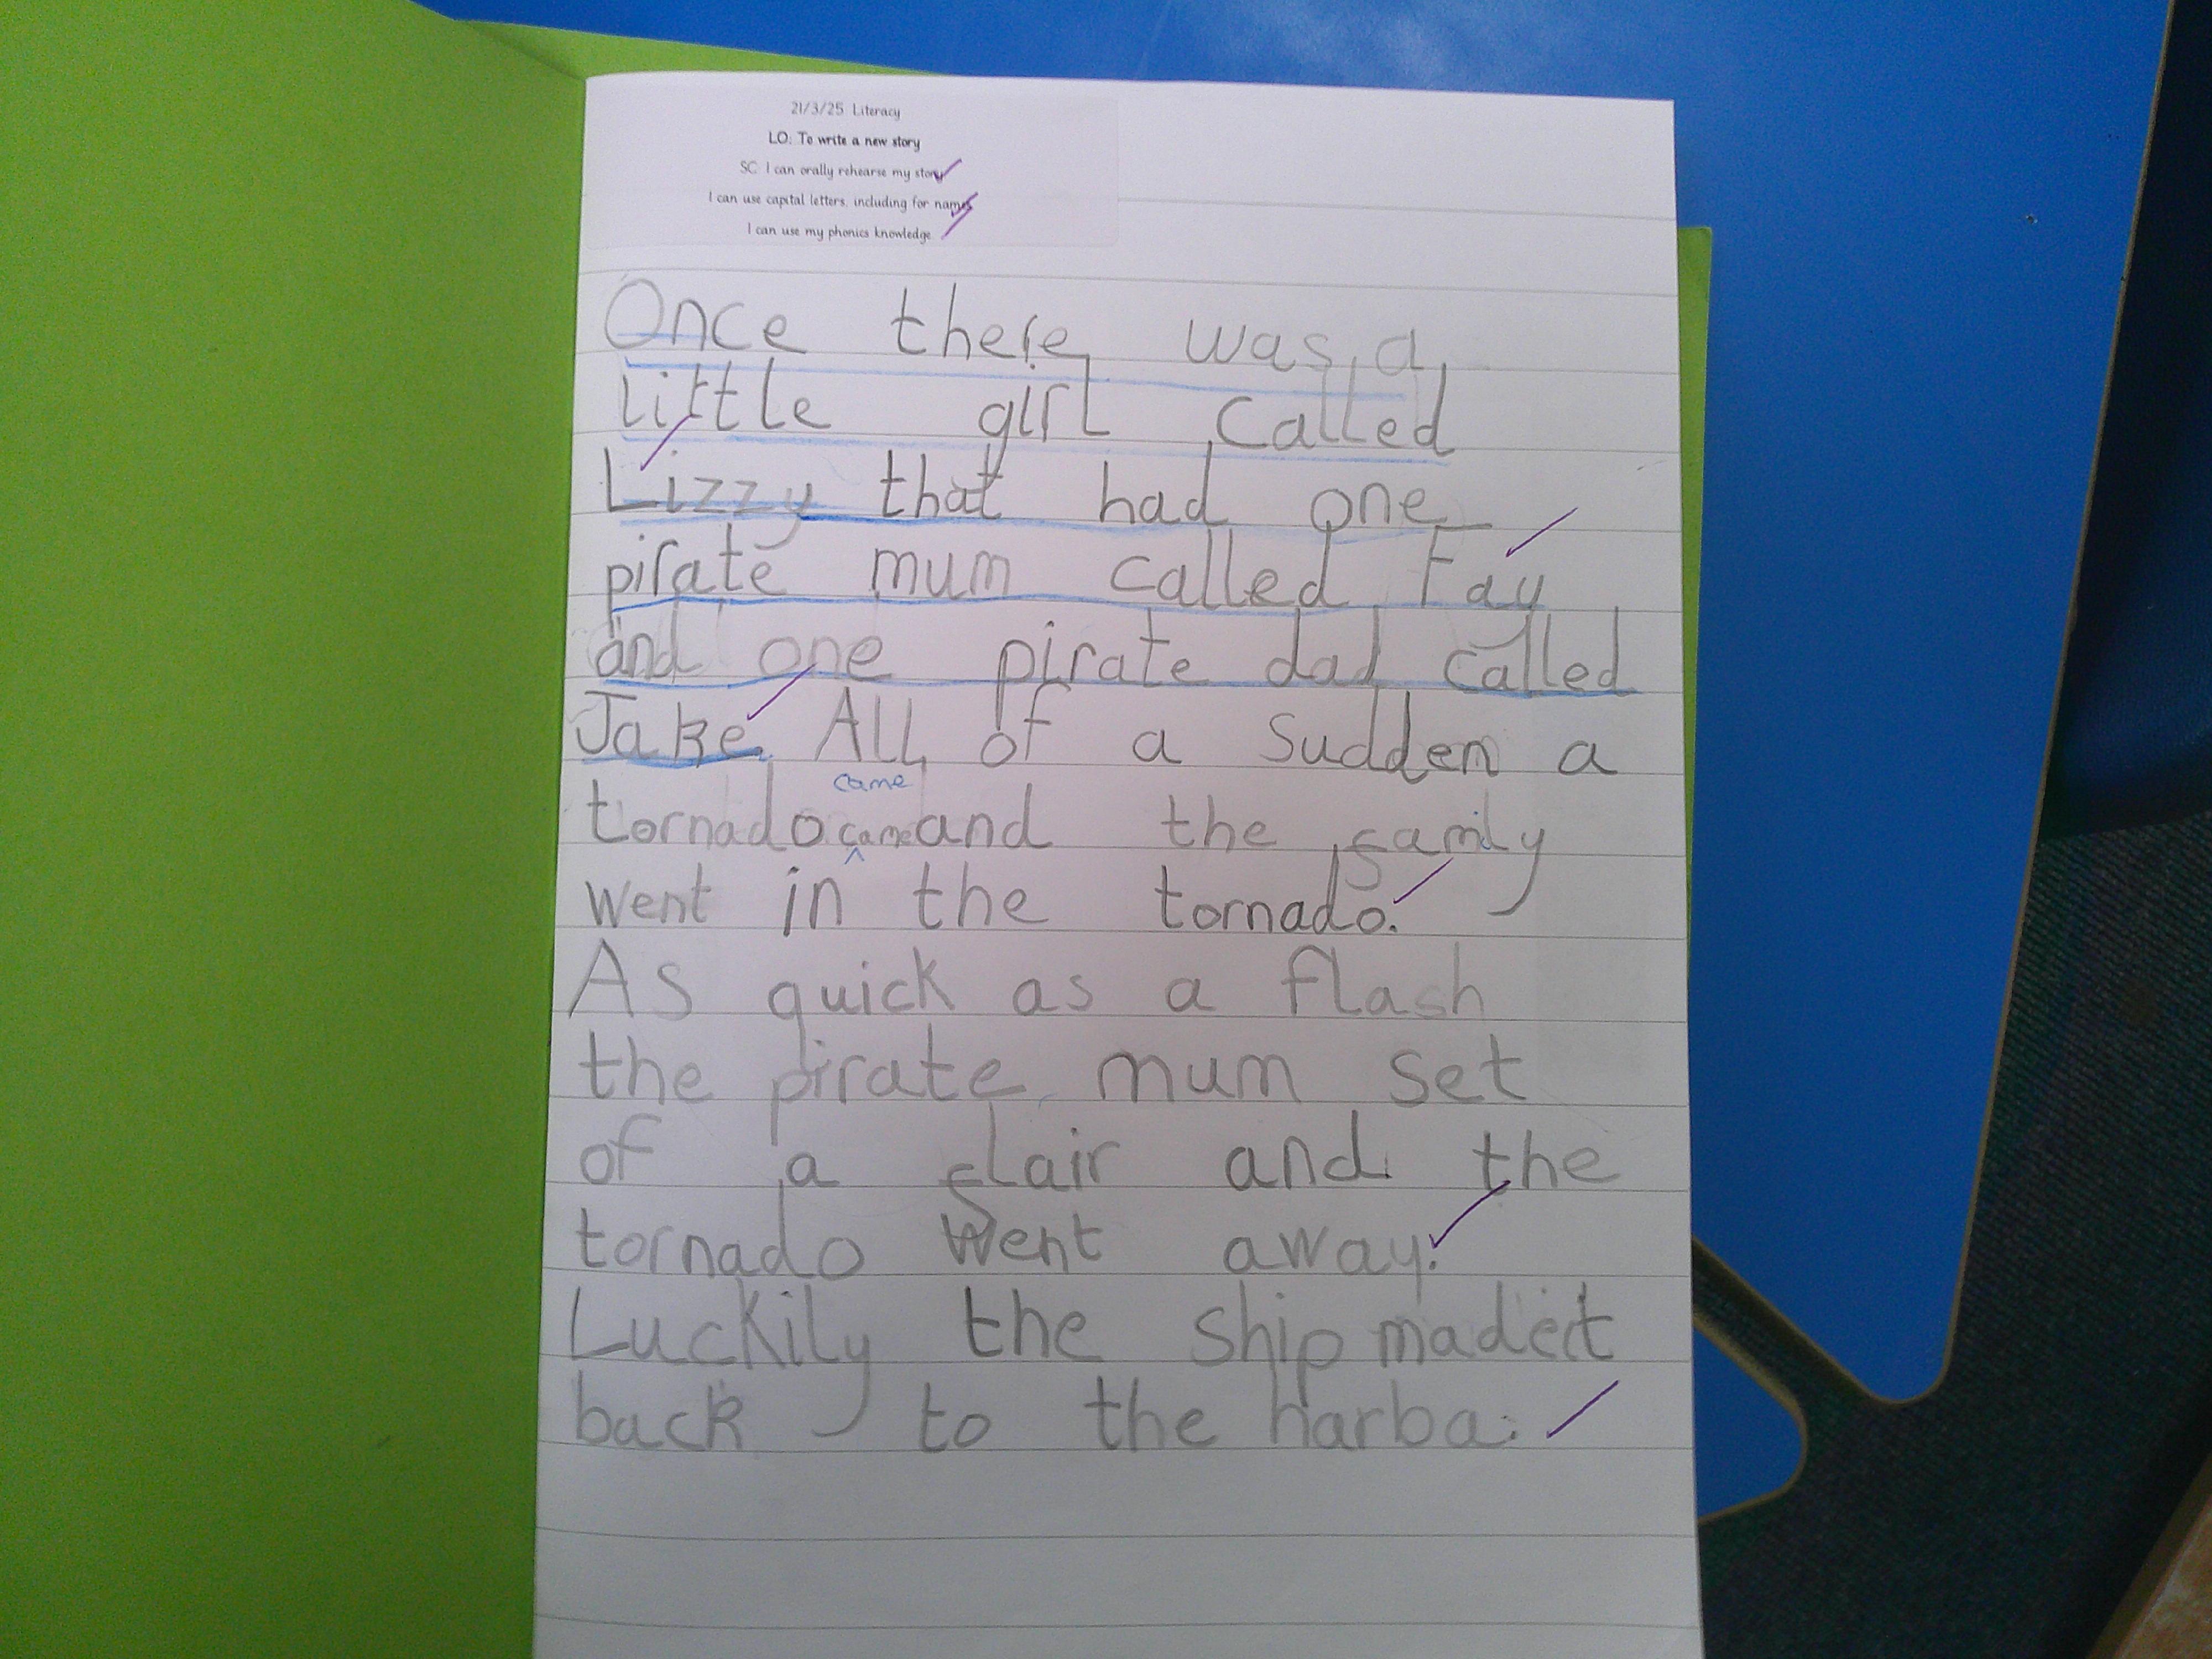 21/3/25 Literacy
LO: To write a new story
SC: I can orally rehearse my story
I can use capital letters, including for names
I can use my phonics knowledge
Once there was a
little girl called
Lizzy that had one
pirate mum called Fay
and one pirate dad called
Jake. All of a sudden a
came
tornado came and the family
went in the tornado.
As quick as a flash
the pirate mum set
of a flair and the
tornado went away.
Luckily the ship made it
back to the harba.